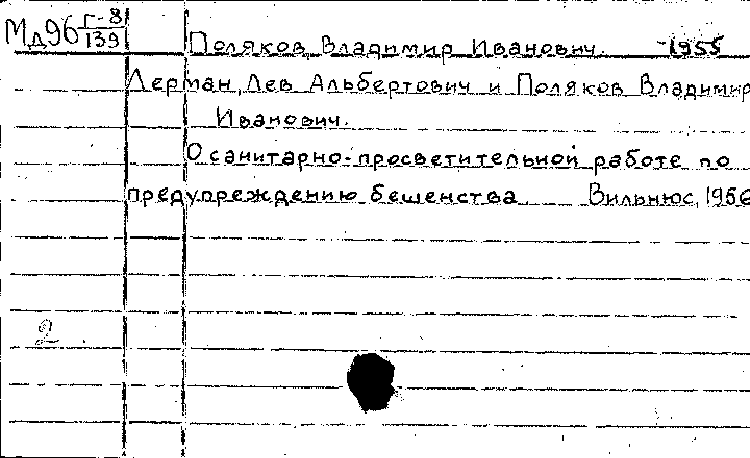 Мд96 Г-8/139
Поляков, Владимир Иванович. 1955
Лерман, Лев Альбертович и Поляков Владимир
Иванович.
О санитарно-просветительной работе по
предупреждению бешенства. Вильнюс, 1956
2